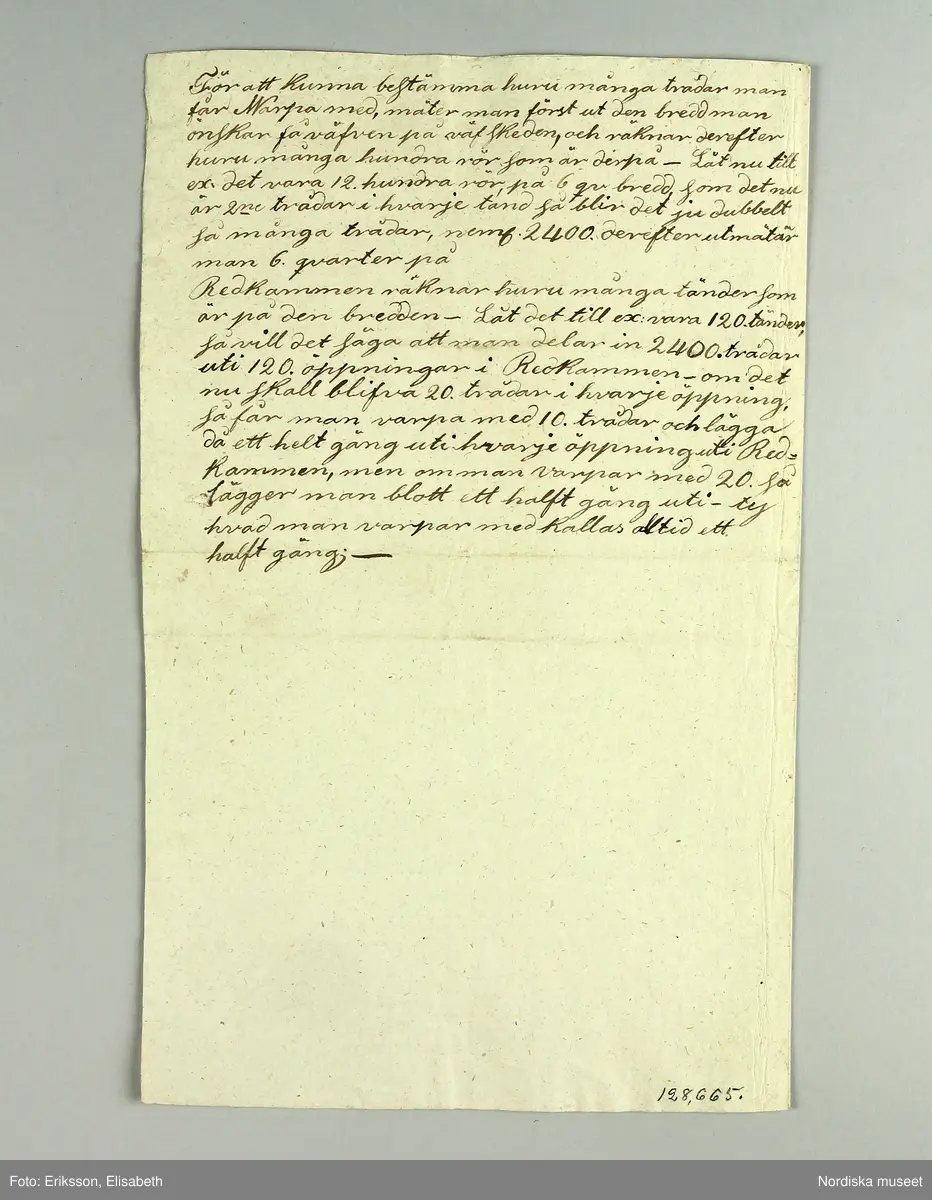 För att kunna bestämma huru många trådar man
får Warpa med, mäter man först ut den bredd man
önskar få väfven på väfskeden, och räknar derefter
huru många hundra rör som är derpå – Låt nu till
ex. det vara 12. hundra rör, på 6 qv bredd, som det nu
är 2ne trådar i hvarje tand så blir det ju dubbelt
så många trådar, neml. 2400. derefter utmätär
man 6. qvarter på
Redkammen räknar huru många tänder som
är på den bredden – Låt det till ex: vara 120. tänder,
så vill det säga att man delar in 2400. trådar
uti 120. öppningar i Redkammen – om det
nu skall blifva 20. trådar i hvarje öppning,
så får man varpa med 10. trådar och lägga
då ett helt gäng uti hvarje öppning uti Red=
kammen, men om man varpar med 20. så
lägger man blott ett halft gäng uti – ty
hvad man varpar med kallas altid ett
halft gäng; —
128,665.
Foto: Eriksson, Elisabeth
Nordiska museet